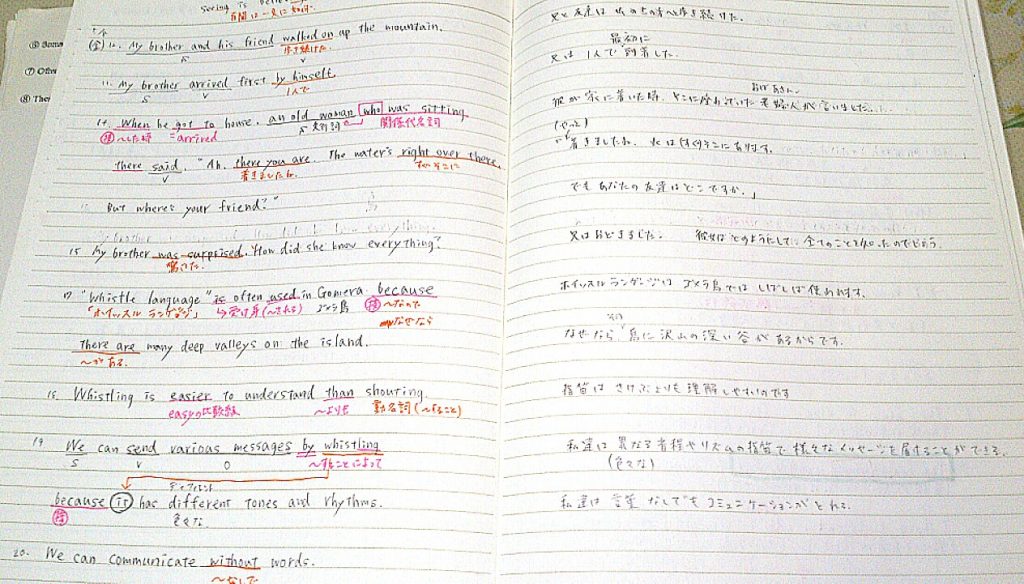 Seeing is belie
百聞は一見に如かず
兄と友達は 山の上の方へ歩き続けた。
⑥ Some
12. My brother and his friend walked on up the mountain.
歩き続けた
S V
最初に
兄は 1人で 到着した。
⑦ Othe
My brother arrived first by himself.
S V 1人で
⑧ The
おばあさん
彼が 家に着いた時、そこに座っていた 老婦人が言いました
14. When he got to home, an old woman who was sitting
接 〜した時 =arrived S 先行詞 関係代名詞
there said, "Ah, there you are. The water's right over there.
V 着きましたね すぐそこに
着きましたね。水はすぐそこにあります。
But where's your friend?"
でも あなたの友達はどこですか。」
15 My brother was surprised. "How did she know everything?
驚いた
兄はおどろきました。 彼女はどのようにして、全てのことを知ったのでしょう。
17 "Whistle language" is often used in Gomera because
「ホイッスル ランゲージ」 受け身(〜される) ゴメラ島 接 〜なので
なぜなら
ホイッスル ランゲージは ゴメラ島では しばしば使われます。
There are many deep valleys on the island.
〜がある
なぜなら 島に沢山の深い谷があるからです。
Whistling is easier to understand than shouting.
easyの比較級 〜よりも 動名詞(〜すること)
指笛は さけぶよりも 理解しやすいのです
19 We can send various messages by whistling
S V O 〜することによって
私達は 異なる音程やリズムの指笛で 様々なメッセージを届けることができる。
(色々な)
ディファレント
because it has different tones and rhythms.
接 色々な
私達は 言葉 なしでも コミュニケーションが とれる。
20. We can communicate without words.
〜なしで